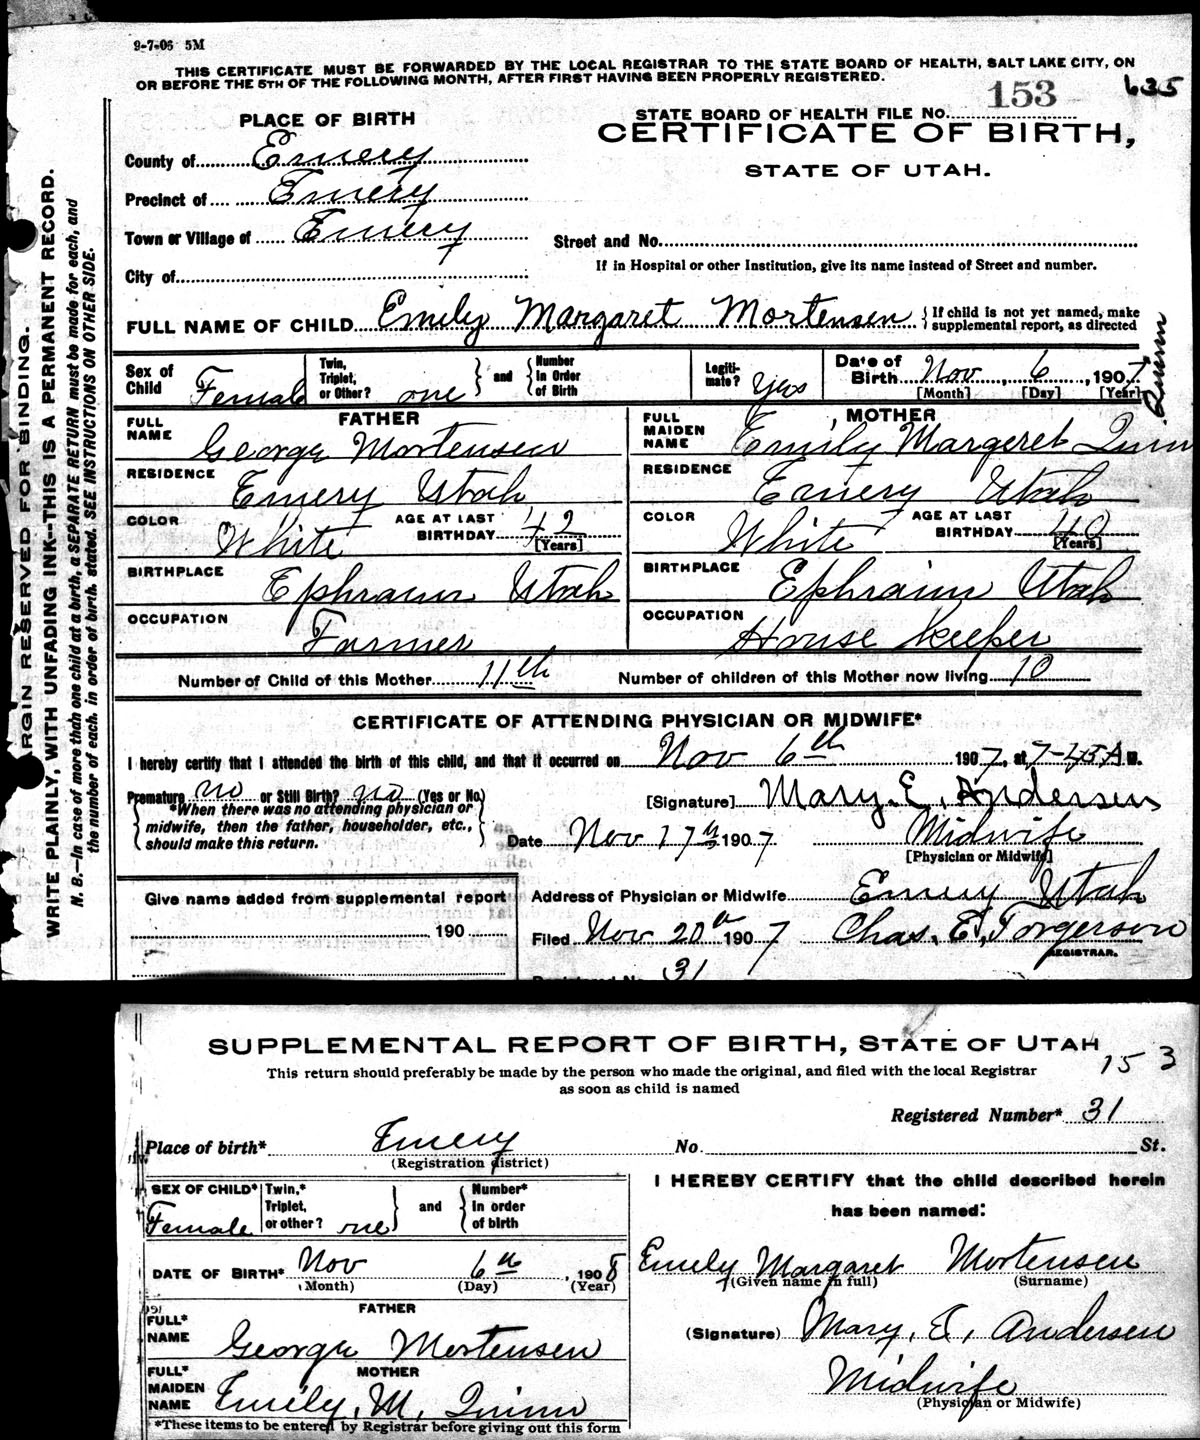 9-7-06 5M
THIS CERTIFICATE MUST BE FORWARDED BY THE LOCAL REGISTRAR TO THE STATE BOARD OF HEALTH, SALT LAKE CITY, ON
OR BEFORE THE 5TH OF THE FOLLOWING MONTH, AFTER FIRST HAVING BEEN PROPERLY REGISTERED.
635
STATE BOARD OF HEALTH FILE NO. 153
CERTIFICATE OF BIRTH,
STATE OF UTAH.
PLACE OF BIRTH
County of Emery
Precinct of Emery
Town or Village of Emery
City of
Street and No.
If in Hospital or other Institution, give its name instead of Street and number.
FULL NAME OF CHILD Emily Margaret Mortensen { If child is not yet named, make
supplemental report, as directed
Sex of Child Female
Twin, Triplet, or Other? one } and { Number In Order of Birth
Legitimate? Yes
Date of Birth Nov, 6, 1907
[Month] [Day] [Year]
Quinn
FATHER
FULL NAME George Mortensen
RESIDENCE Emery Utah
COLOR White AGE AT LAST BIRTHDAY 42 [Years]
BIRTHPLACE Ephraim Utah
OCCUPATION Farmer
MOTHER
FULL MAIDEN NAME Emily Margeret Quin
RESIDENCE Emery Utah
COLOR White AGE AT LAST BIRTHDAY 40 [Years]
BIRTHPLACE Ephraim Utah
OCCUPATION House Keeper
Number of Child of this Mother 11th Number of children of this Mother now living 10
CERTIFICATE OF ATTENDING PHYSICIAN OR MIDWIFE*
I hereby certify that I attended the birth of this child, and that it occurred on Nov 6th 1907, at 7-45 A M.
Premature no or Still Birth? no (Yes or No)
{ *When there was no attending physician or
midwife, then the father, householder, etc.,
should make this return. }
[Signature] Mary. E. Andersen
Date Nov 17th 1907 Midwife
[Physician or Midwife]
Address of Physician or Midwife Emery Utah
Filed Nov 20th 1907 Chas. E. Torgerson
REGISTRAR.
Registered No. 31
Give name added from supplemental report
190
ARGIN RESERVED FOR BINDING.
WRITE PLAINLY, WITH UNFADING INK—THIS IS A PERMANENT RECORD.
N. B.—In case of more than one child at a birth, a SEPARATE RETURN must be made for each, and
the number of each, in order of birth, stated. SEE INSTRUCTIONS ON OTHER SIDE.
SUPPLEMENTAL REPORT OF BIRTH, STATE OF UTAH
153
This return should preferably be made by the person who made the original, and filed with the local Registrar
as soon as child is named
Registered Number* 31
Place of birth* Emery No. St.
(Registration district)
SEX OF CHILD* Female
Twin,* Triplet, or other? one } and { Number* In order of birth
DATE OF BIRTH* Nov 6th, 1908
(Month) (Day) (Year)
FATHER
FULL* NAME George Mortensen
MOTHER
FULL* MAIDEN NAME Emily. M. Quinn
*These items to be entered by Registrar before giving out this form
I HEREBY CERTIFY that the child described herein
has been named:
Emely Margaret Mortensen
(Given name in full) (Surname)
(Signature) Mary, E, Andersen
Midwife
(Physician or Midwife)